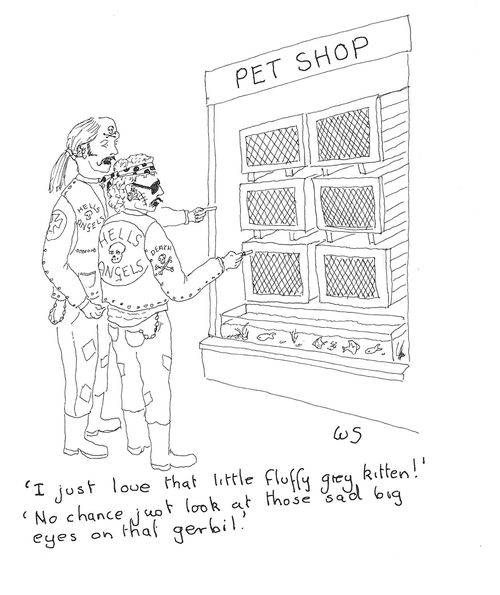 PET SHOP
HELLS
ANGELS
HELLS
ANGELS
DEATH
WS
'I just love that little fluffy grey kitten!'
'No chance just look at those sad big
eyes on that gerbil.'